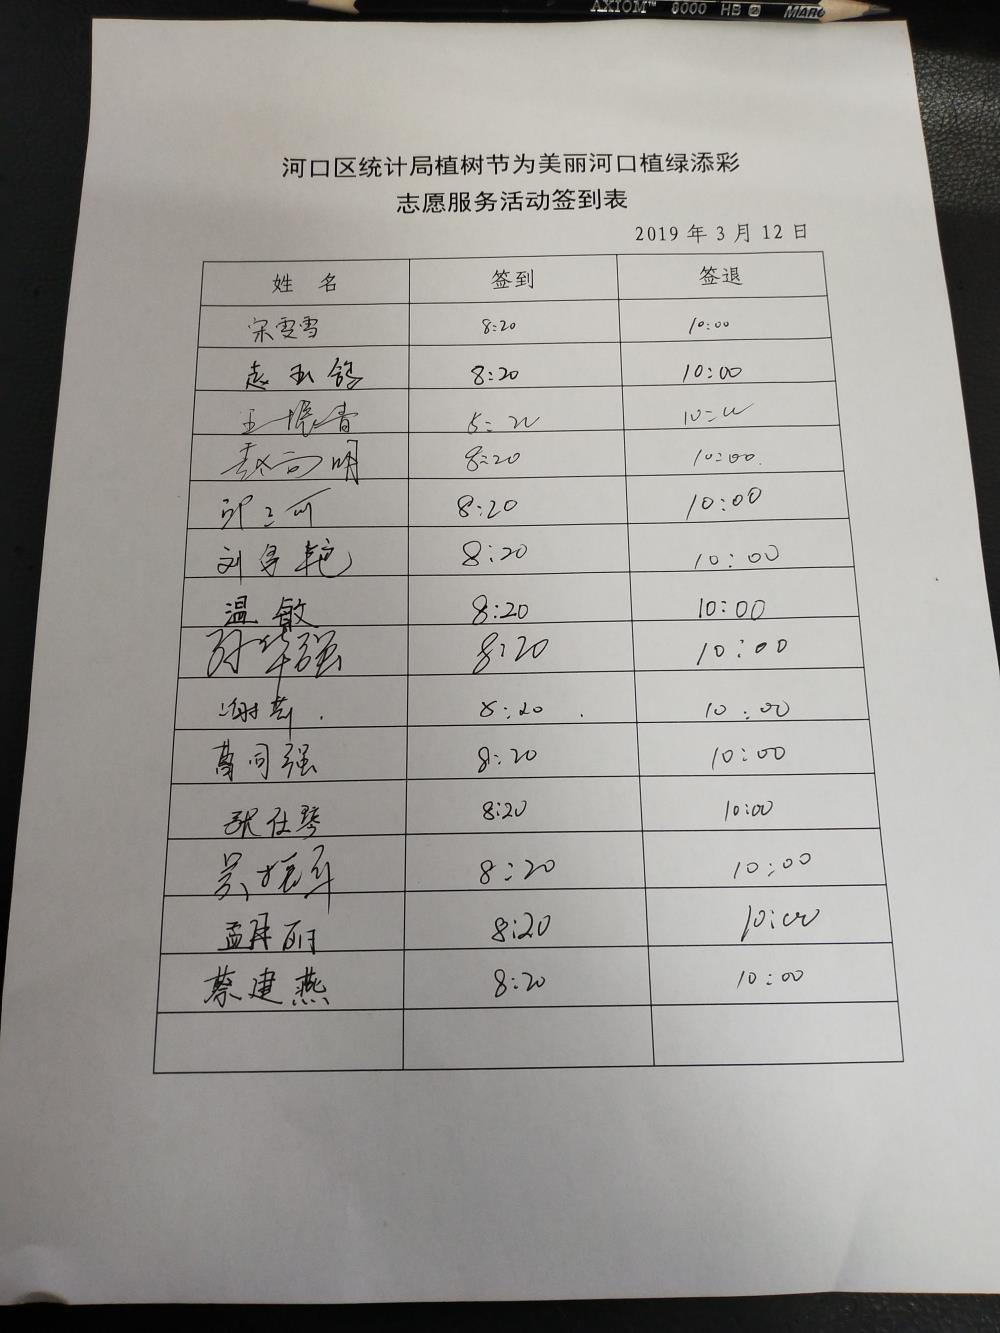 AXIOM™ 6000 HB ② MARCO
河口区统计局植树节为美丽河口植绿添彩
志愿服务活动签到表
2019 年 3 月 12 日
姓 名 签到 签退
宋雯雪 8:20 10:00
赵玉鸽 8:20 10:00
王振青 10:00
赵向明 8:20 10:00.
8:20 10:00
刘 艳 8:20 10:00
温敏 8:20 10:00
孙华强 8:20 10:00
谢 8:20 10:00
葛同强 8:20 10:00
张仕琴 8:20 10:00
吴振军 8:20 10:00
孟月丽 8:20 10:00
蔡建燕 8:20 10:00